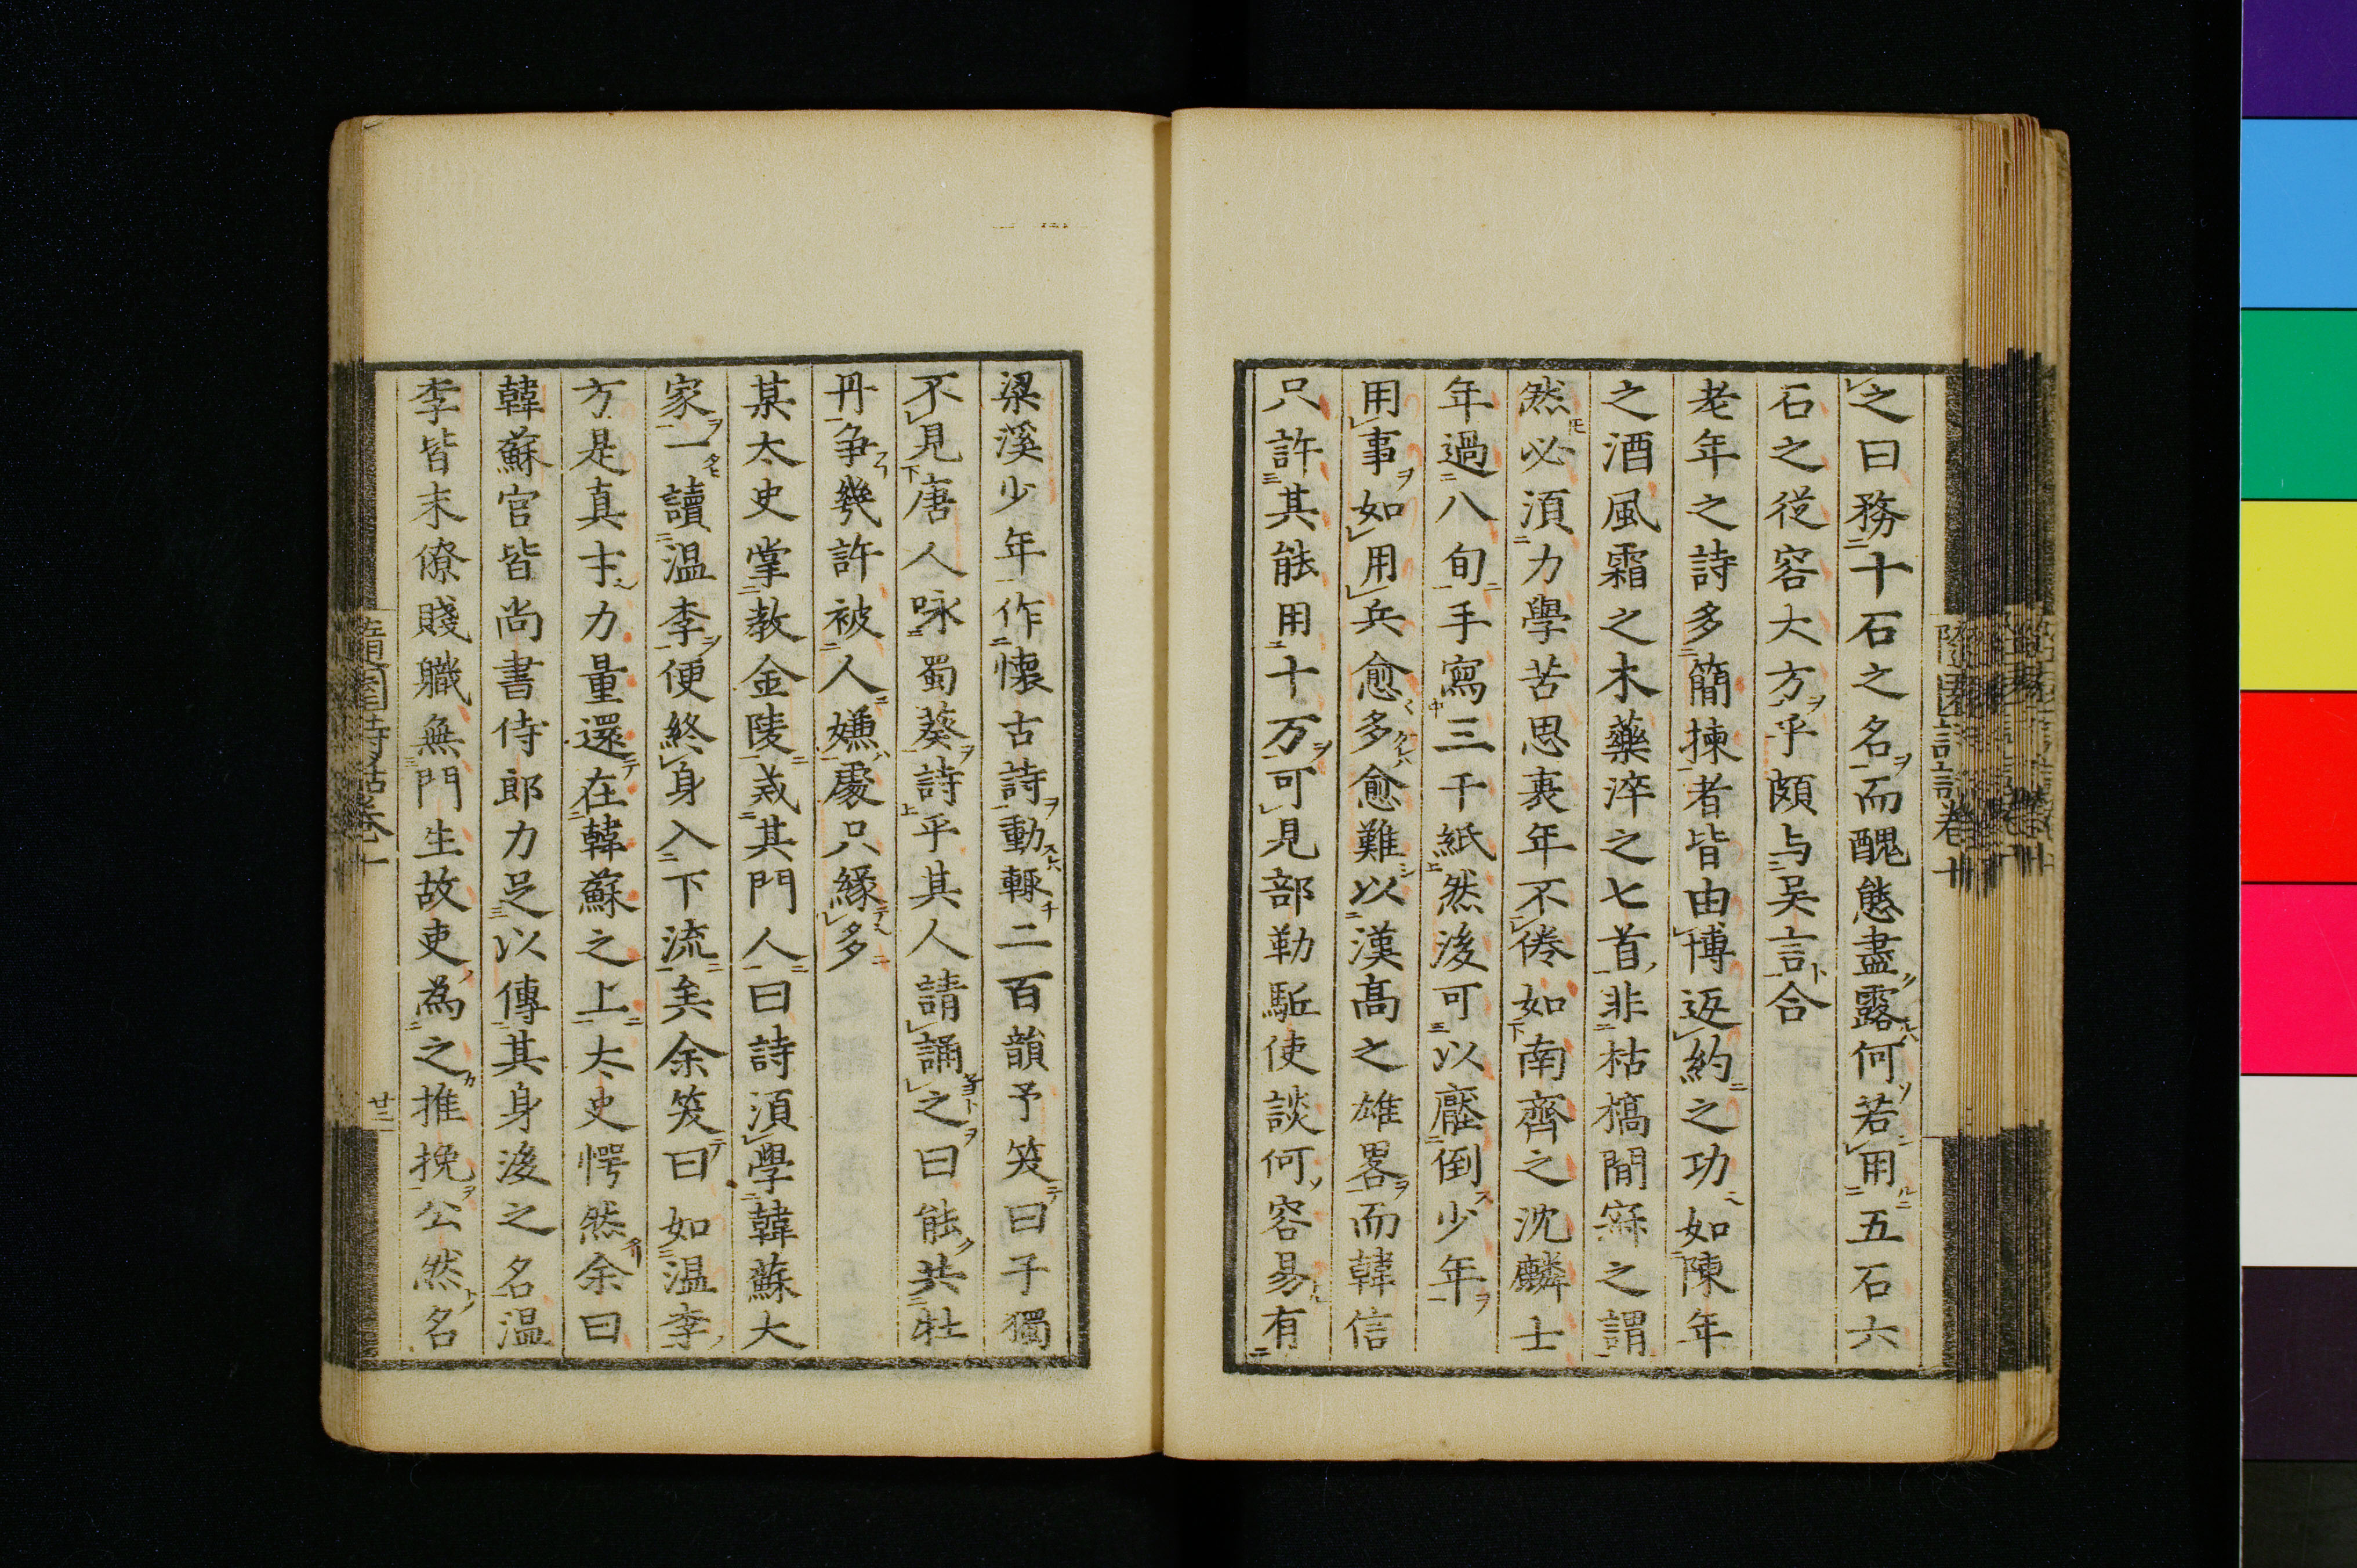 之曰務十石之名而醜態盡露何若用五石六
石之従容大方乎頗与吴言合
老年之詩多簡揀者皆由博返約之功如陳年
之酒風霜之木藥淬之七首非枯槁閒寂之謂
然必須力學苦思衰年不倦如南齊之沈麟士
年過八旬手寫三千紙然後可以壓倒少年
用事如用兵愈多愈難以漢髙之雄畧而韓信
只許其能用十万可見部勒駈使談何容易有
梁溪少年作懐古詩動輙二百韻予笑曰子獨
不見唐人咏蜀葵詩乎其人請誦之曰能共牡
丹争幾許被人嫌處只縁多
某太史掌教金陵戒其門人曰詩須學韓蘇大
家一讀温李便終身入下流矣余笑曰如温李
方是真才力量還在韓蘇之上太史愕然余曰
韓蘇官皆尚書侍郎力足以傳其身後之名温
李皆末僚賤職無門生故吏為之推挽公然名
隨園詩話卷一
廿三